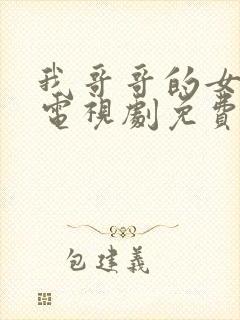 我哥哥的女
電視劇免費
包建義